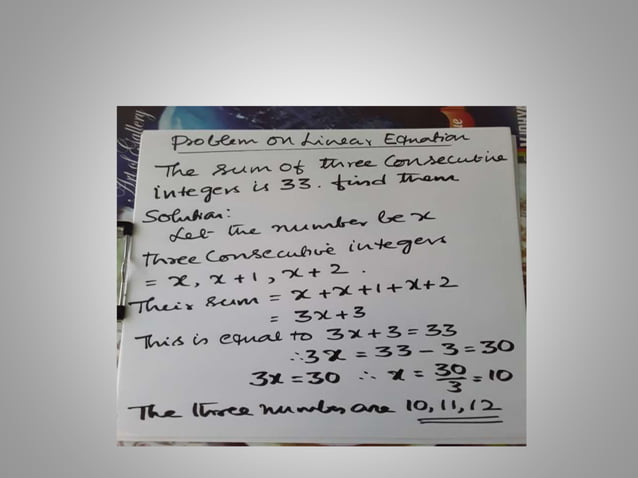 Art of Gallery
Problem on Linear Equation
The sum of three Consecutive
integers is 33. find them
Solution:
Let the number be x
three Consecutive integers
= x, x+1, x+2.
Their sum = x+x+1+x+2
= 3x+3
This is equal to 3x+3=33
∴3x = 33-3=30
3x=30 ∴ x = 30/3 = 10
The three numbers are 10, 11, 12